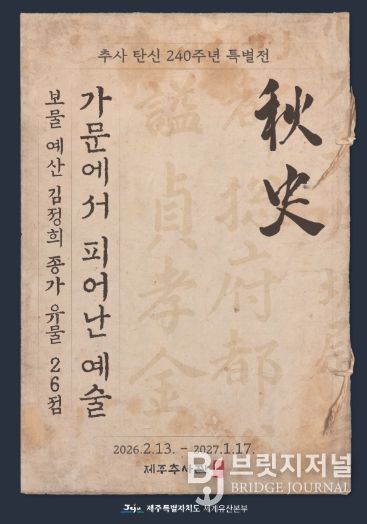 추사 탄신 240주년 특별전
秋史
가문에서 피어난 예술
보물 예산 김정희 종가 유물 26점
諡貞孝金
府都
2026.2.13. - 2027.1.17.
제주추사관
Bj 브릿지저널
BRIDGE JOURNAL
Jeju 제주특별자치도 세계유산본부